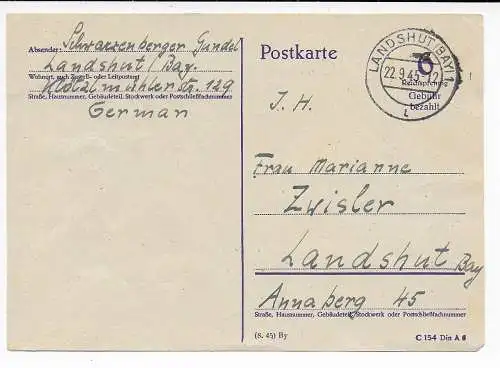 Absender: Schwarzenberger Gundel
Landshut / Bay.
Wohnort, auch Zustell- oder Leitpostamt
Klötzlmühler Str. 129
Straße, Hausnummer, Gebäudeteil, Stockwerk oder Postschließfachnummer
German
Postkarte
LANDSHUT (BAY) 1
22.9.45
6
Reichspfennig
Gebühr
bezahlt
J. H.
Frau Marianne
Zwisler
Landshut Bay
Annaberg 45
Straße, Hausnummer, Gebäudeteil, Stockwerk oder Postschließfachnummer
(8. 45) By
C 154 Din A 6